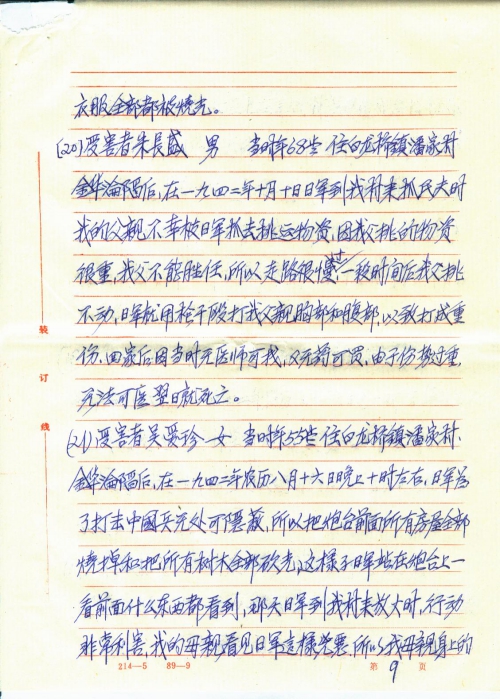 衣服全部都被烧光。
(20)受害者朱长盛 男 当时年68岁 住白龙桥镇潘家村
金华沦陷后,在一九四二年十月十日日军到我村来抓民夫时
我的父亲不幸被日军抓去挑运物资,因我父挑的物资
很重,我父不能胜任,所以走路很慢,一段时间后我父挑
不动,日军就用枪干殴打我父亲胸部和腹部,以致打成重
伤,回家后因当时无医师可找,又无药可买,由于伤势过重,
无法可医翌日就死亡。
(21)受害者吴爱珍 女 当时年55岁 住白龙桥镇潘家村
金华沦陷后,在一九四二年农历八月十六日晚上十时左右,日军为
了打击中國兵无处可隐蔽,所以把炮台前面所有房屋全部
烧掉和把所有树木全部砍光,这样子日军站在炮台上一
看前面什么东西都看到,那天日军到我村来放火时,行动
非常利害,我的母亲看见日军这樣兇恶,所以我母親身上的
装
订
线
214—5 89—9
第 9 页